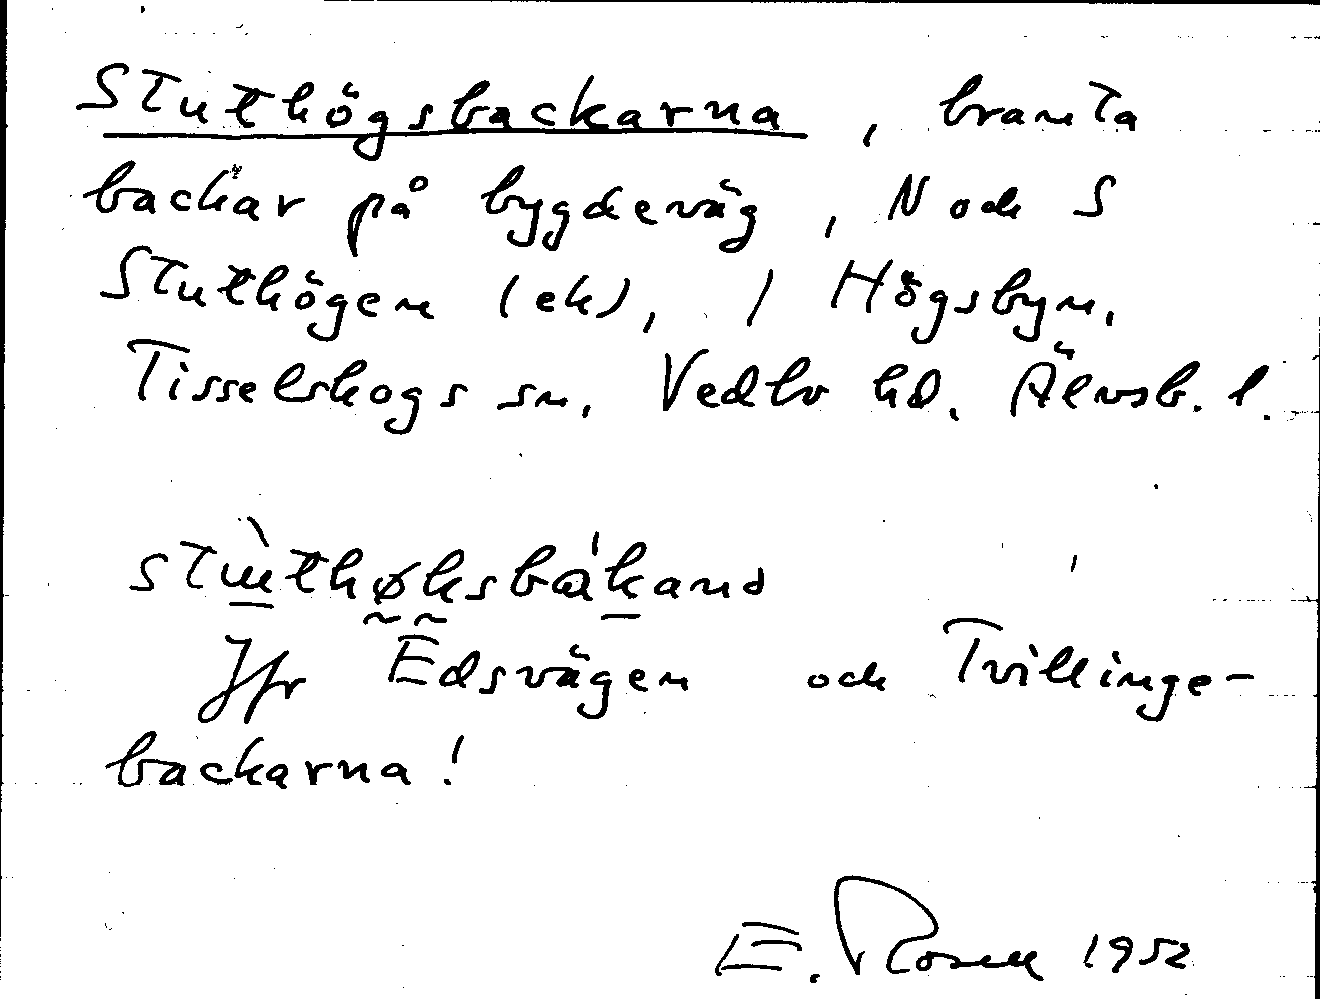 Stuthögsbackarna, branta
backar på bygdeväg, N och S
Stuthögen (ek), / Högsbyn,
Tisselskogs sn, Vedbo hd. Älvsb. l.
Jfr Edsvägen och Tvillinge-
backarna!
E. Rosell 1952